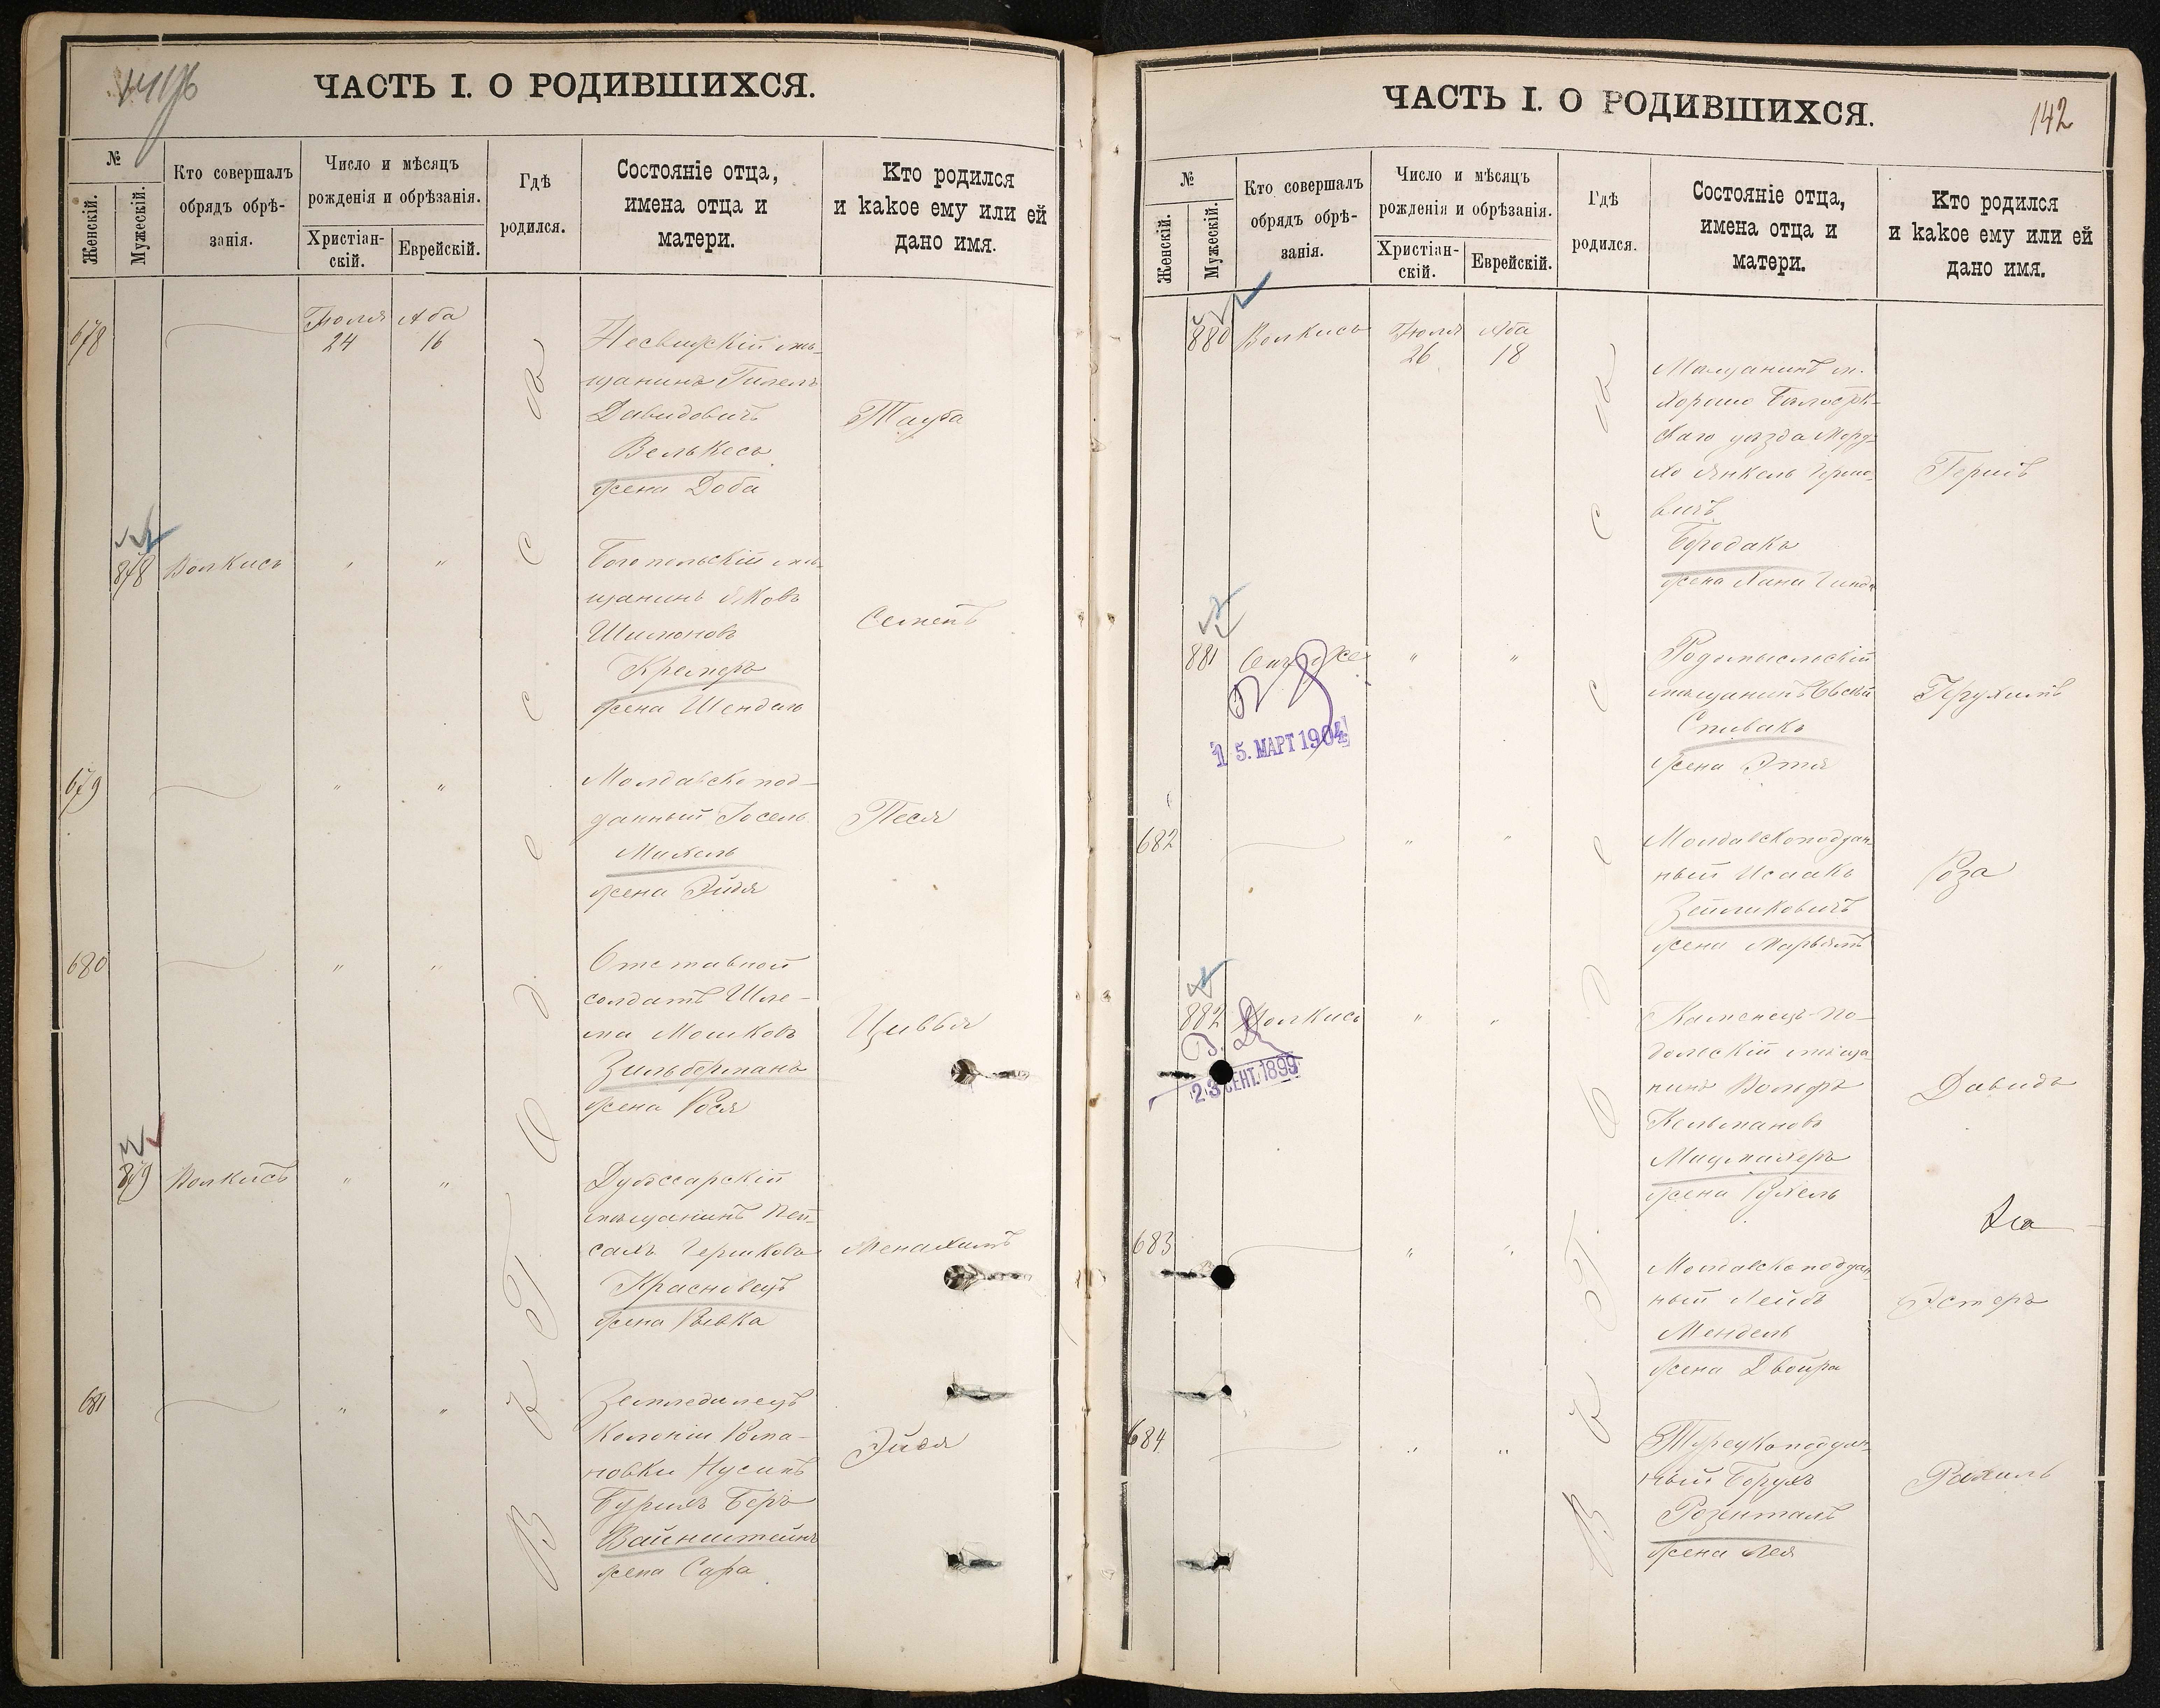 ЧАСТЬ I. О РОДИВШИХСЯ.
№
Женскій.
Мужескій.
Кто совершалъ
обрядъ обрѣ-
занія.
Число и мѣсяцъ
рожденія и обрѣзанія.
Христіан-
скій.
Еврейскій.
Гдѣ
родился.
Состояніе отца,
имена отца и
матери.
Кто родился
и какое ему или ей
дано имя.
678
Іюля Аба
24 16
Несвижскій мѣ-
щанинъ Гилель
Давидовичъ
Велькесъ
жена Доба
Тауба
878 Волкисъ " "
Богопольскій мѣ-
щанинъ Яковъ
Шимоновъ
Кремеръ
жена Шендель
Семенъ
679 " "
Молдавскопод-
данный Іосель
Михель
жена Эйдя
Песя
680 " "
Отставной
солдатъ Шле-
ма Мошковъ
Зильберманъ
жена Рося
Цивья
879 Волкисъ " "
Дубоссарскій
мѣщанинъ Пей-
сахъ Гершковъ
Красновецъ
жена Ривка
Менахимъ
681 " "
Земледѣлецъ
колоніи Рома-
новки Нусинъ
Беръ
Вайнштейнъ
жена Сара
Эйдя
В г. Одессѣ
ЧАСТЬ I. О РОДИВШИХСЯ.
142
№
Женскій.
Мужескій.
Кто совершалъ
обрядъ обрѣ-
занія.
Число и мѣсяцъ
рожденія и обрѣзанія.
Христіан-
скій.
Еврейскій.
Гдѣ
родился.
Состояніе отца,
имена отца и
матери.
Кто родился
и какое ему или ей
дано имя.
880 Волкисъ Іюля Аба
26 18
Мѣщанинъ м.
Хорощо Бѣлосток-
скаго уѣзда Морд-
хо Янкель Гершо-
вичъ
Бородакъ
жена Хана
Гершъ
881 " "
15. МАРТ 1904
Радомысльскій
мѣщанинъ
Спивакъ
жена Этя
Іерухимъ
682 " "
Молдавскоподдан-
ный Исаакъ
Зейликовичъ
жена Марьямъ
Роза
882 Волкисъ " "
23 СЕНТ. 1899
Каменецъ-По-
дольскій мѣща-
нинъ Вольфъ
Кельмановъ
Мацмахеръ
жена Рухель
Давидъ
683 " "
Молдавскоподдан-
ный Лейбъ
Мендель
жена Двойра
Эстеръ
684 " "
Турецкоподдан-
ный Борухъ
Розенталь
жена Лея
Рахиль
В г. Одессѣ